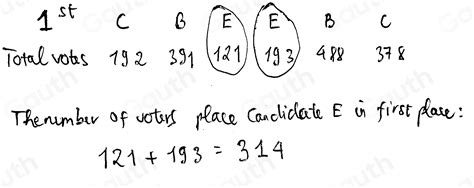 1st C B E E B C
Total votes 192 391 121 193 488 378
The number of voters place Candidate E in first place:
121 + 193 = 314